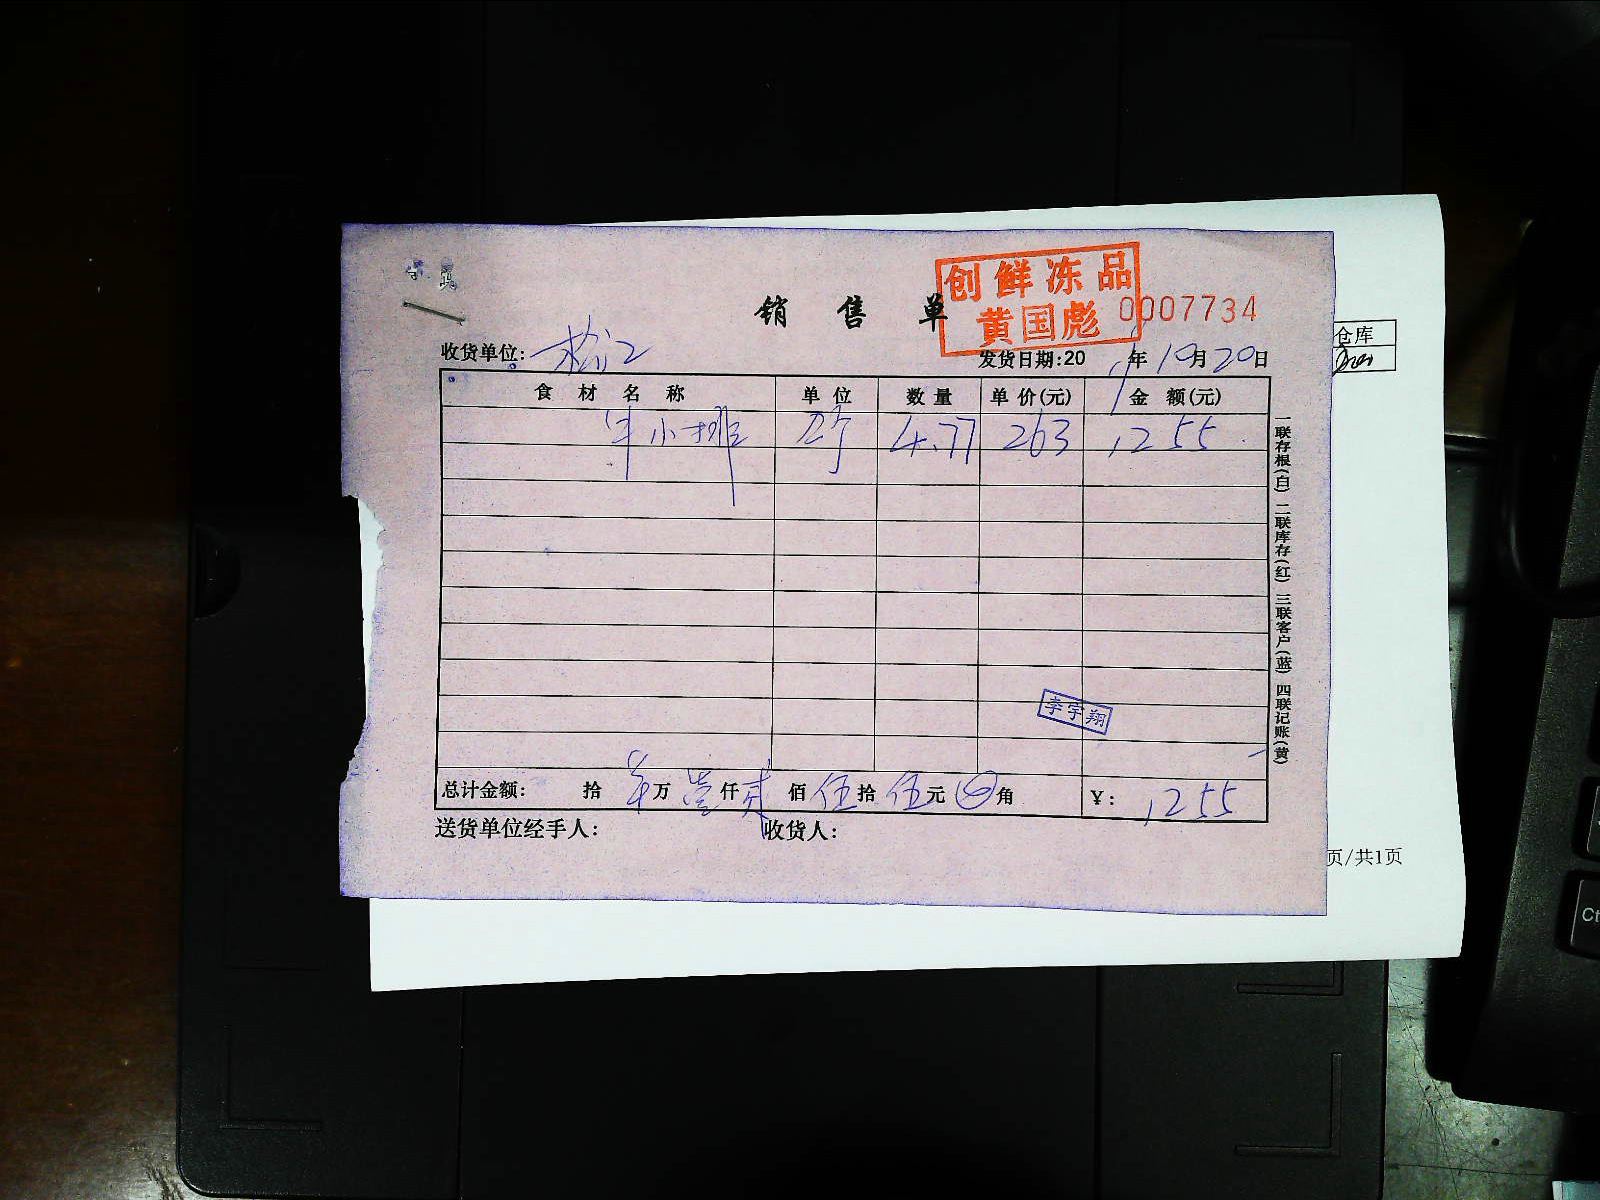 创鲜冻品
黄国彪
销售单 0007734
收货单位: 松江 发货日期:20 年10月20日
食材名称 单位 数量 单价(元) 金额(元)
牛小排 4.77 263 1255
李宇翔
总计金额: 拾 万 壹仟贰佰伍拾伍元 角 ¥: 1255
送货单位经手人: 收货人:
一联存根(白) 二联库存(红) 三联客户(蓝) 四联记账(黄)
仓库
页/共1页
Ct